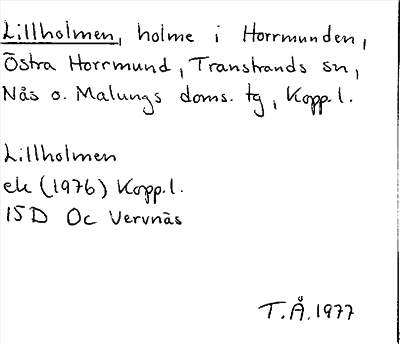 Lillholmen, holme i Horrmunden,
Östra Horrmund, Transtrands sn,
Nås o. Malungs doms. tg, Kopp.l.
Lillholmen
ek (1976) Kopp.l.
15D Oc Vervnäs
T.Å.1977